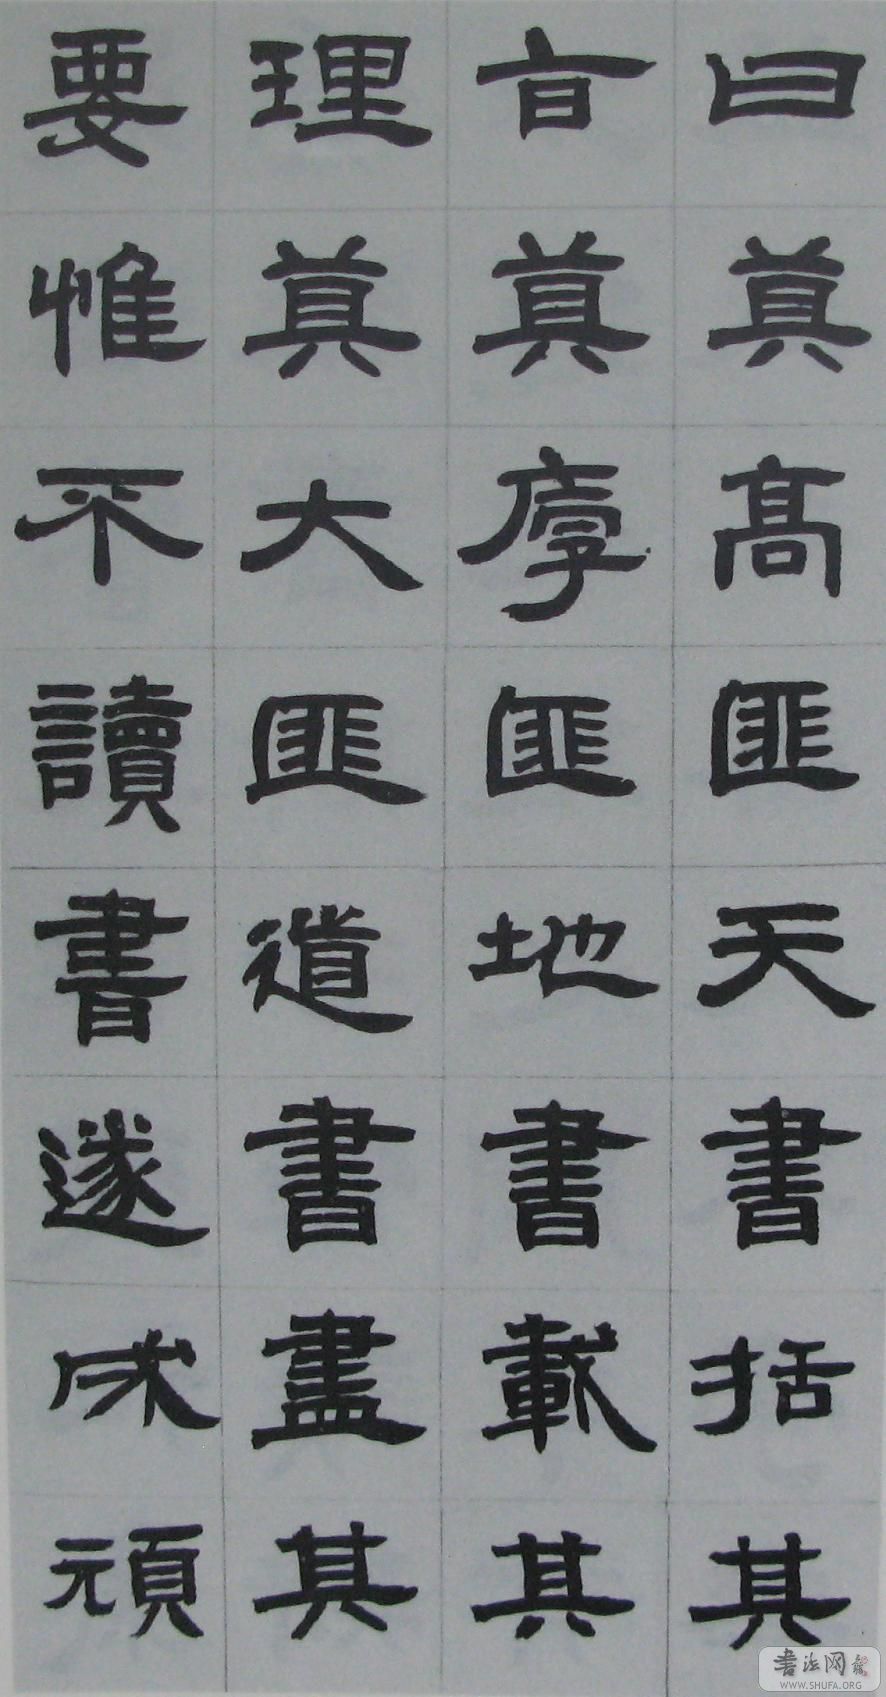 曰莫高匪天書括其
旨莫厚匪地書載其
理莫大匪道書盡其
要惟不讀書遂成頑
書法网
WWW.SHUFA.ORG